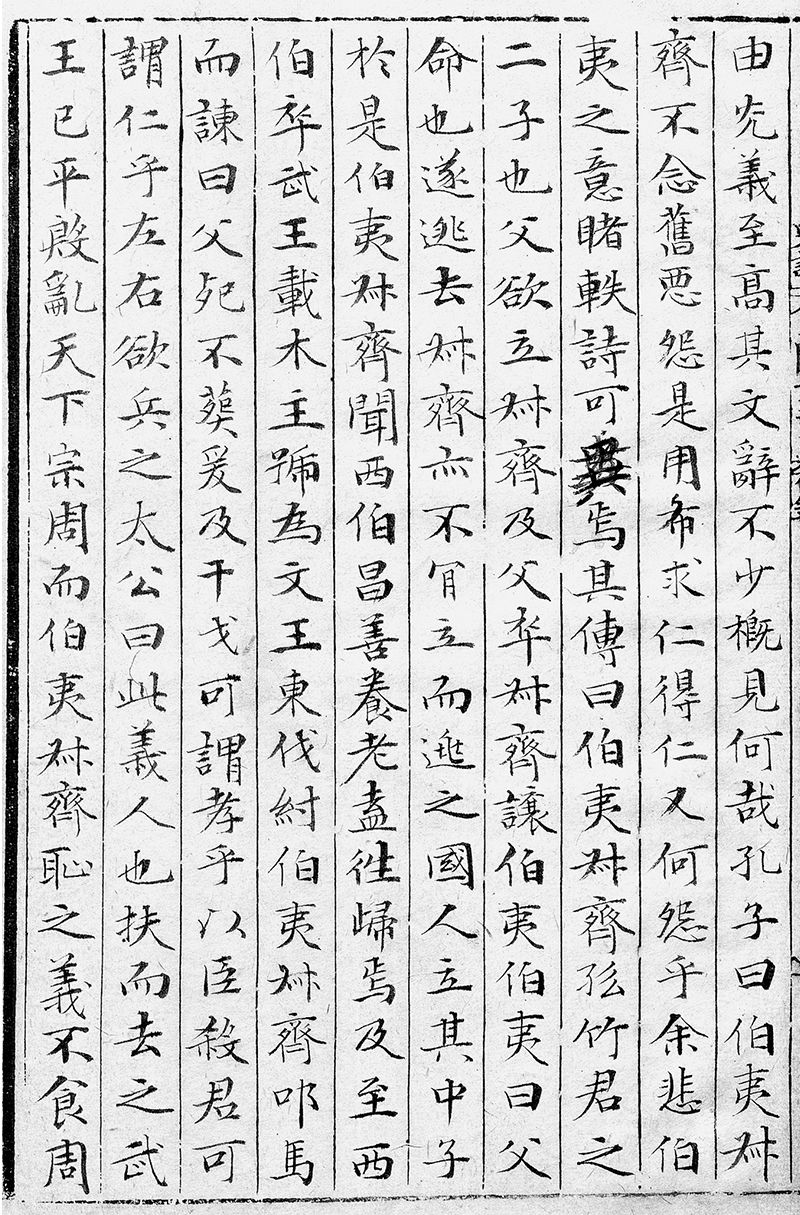 由光義至高其文辭不少概見何哉孔子曰伯夷叔
齊不念舊惡怨是用希求仁得仁又何怨乎余悲伯
夷之意睹軼詩可異焉其傳曰伯夷叔齊孤竹君之
二子也父欲立叔齊及父卒叔齊讓伯夷伯夷曰父
命也遂逃去叔齊亦不肎立而逃之國人立其中子
於是伯夷叔齊聞西伯昌善養老盍往歸焉及至西
伯卒武王載木主號為文王東伐紂伯夷叔齊叩馬
而諫曰父死不葬爰及干戈可謂孝乎以臣殺君可
謂仁乎左右欲兵之太公曰此義人也扶而去之武
王已平殷亂天下宗周而伯夷叔齊恥之義不食周